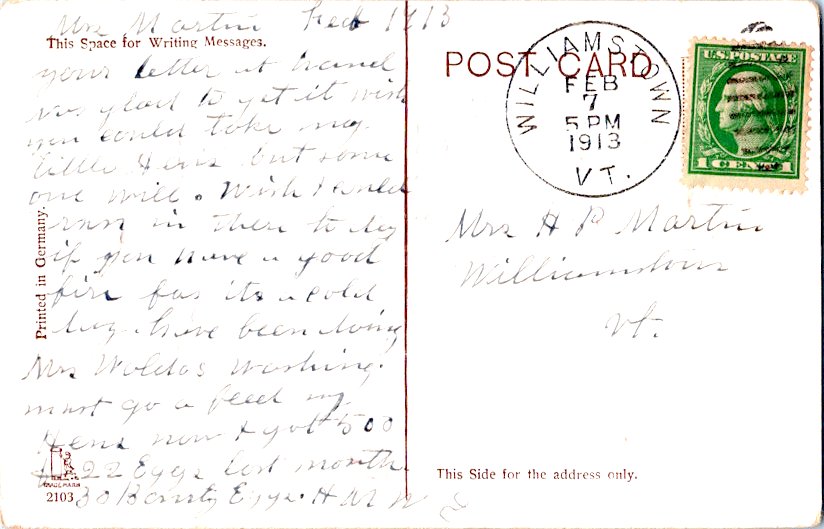 Mrs Martin Feb 1913
This Space for Writing Messages.
your letter at hand
was glad to get it wish
you could take my
little Hens but some
one will. Wish I could
run in there to day
if you have a good
fire for its a cold
day. have been doing
Mrs washing.
must go & feed my
Hens now I got 500
22 Eggs last month
30 Eggs. H M W
Printed in Germany.
TRADE MARK
2103
POST CARD
WILLIAMSTOWN
FEB
7
5 PM
1913
VT.
U.S. POSTAGE
1 CENT 1
Mrs H P Martin
Williamstown
Vt.
This Side for the address only.